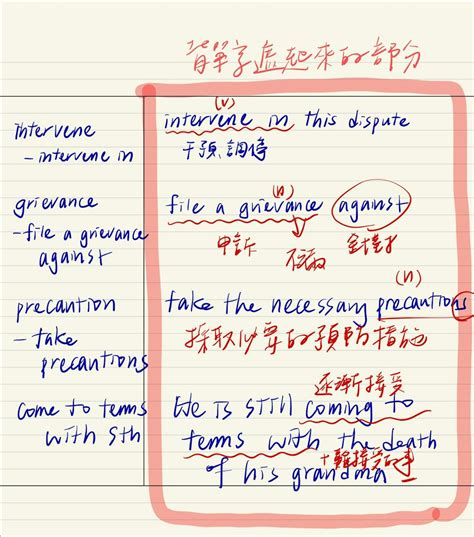 背單字處起來的部分
(v)
intervene
intervene in this dispute
- intervene in
干預調停
(n)
grievance
file a grievance against
- file a grievance against
申訴 不滿 針對
(n)
precaution
take the necessary precautions
- take precautions
採取必要的預防措施
逐漸接受
come to terms with sth
He is still coming to
terms with the death
+難接受的事
of his grandma